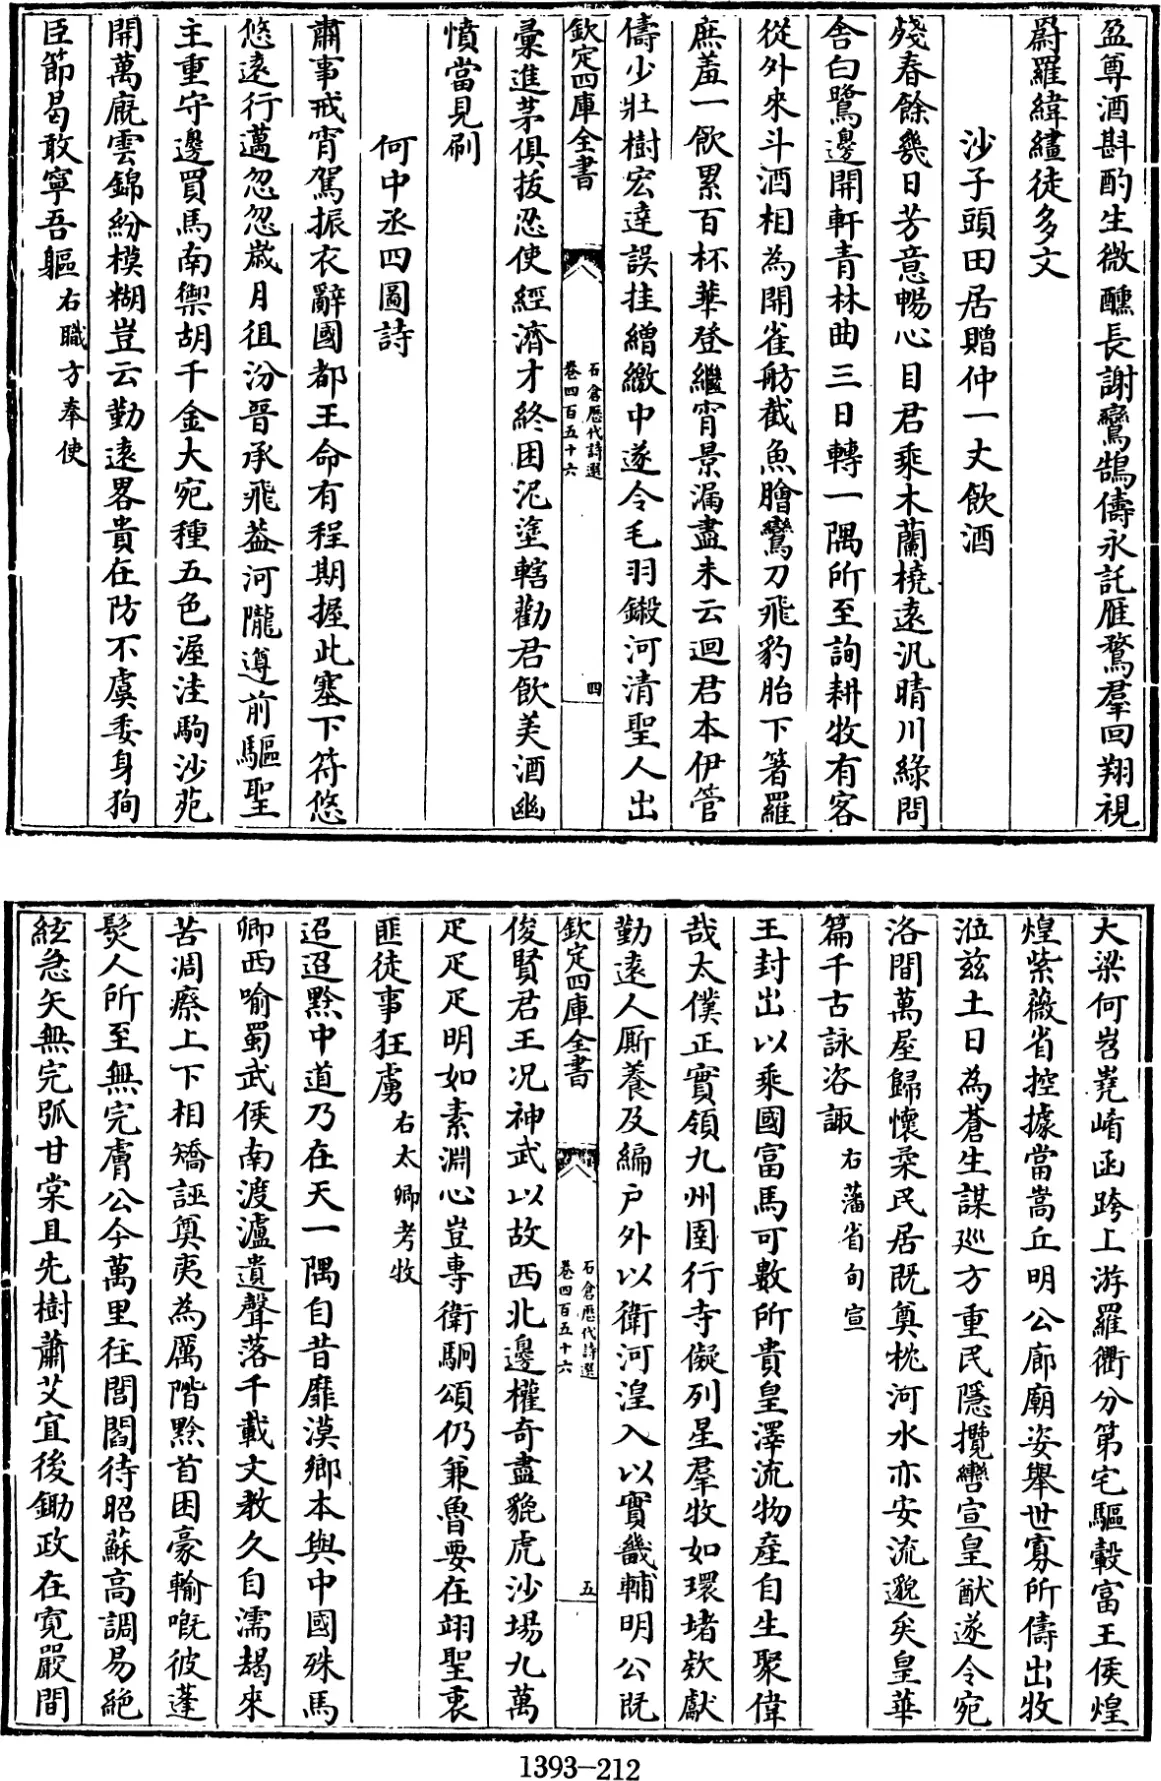 盈尊酒斟酌生微醺長謝鸞鵠儔永託雁鶩羣回翔視
罻羅緯繣徒多文
沙子頭田居贈仲一丈飲酒
殘春餘幾日芳意暢心目君乘木蘭橈遠汎晴川綠問
舍白鷺邊開軒青林曲三日轉一隅所至詢耕牧有客
從外來斗酒相為開雀舫截魚膾鸞刀飛豹胎下箸羅
庶羞一飲累百杯華登繼宵景漏盡未云迴君本伊管
儔少壯樹宏達誤挂繒繳中遂令毛羽鎩河清聖人出
欽定四庫全書
石倉歷代詩選
卷四百五十六
四
彙進茅俱拔忍使經濟才終困泥塗轄勸君飲美酒幽
憤當見刷
何中丞四圖詩
肅事戒宵駕振衣辭國都王命有程期握此塞下符悠
悠遠行邁忽忽歲月徂汾晉承飛蓋河隴遵前驅聖
主重守邊買馬南禦胡千金大宛種五色渥洼駒沙苑
開萬廐雲錦紛模糊豈云勤遠畧貴在防不虞委身狥
臣節曷敢寧吾軀右職方奉使
大梁何岧嶤崤函跨上游羅衢分第宅驅轂富王侯煌
煌紫薇省控據當嵩丘明公廊廟姿舉世寡所儔出牧
涖茲土日為蒼生謀廵方重民隱攬轡宣皇猷遂令宛
洛間萬屋歸懷柔民居既奠枕河水亦安流邈矣皇華
篇千古詠咨諏右藩省旬宣
王封出以乘國富馬可數所貴皇澤流物產自生聚偉
哉太僕正實領九州圉行寺儗列星羣牧如環堵欸獻
勤遠人厮養及編戶外以衛河湟入以實畿輔明公既
欽定四庫全書
石倉歷代詩選
卷四百五十六
五
俊賢君王況神武以故西北邊權奇盡貔虎沙場九萬
疋疋疋明如素淵心豈專衛駉頌仍兼魯要在翊聖衷
匪徒事狂虜右太卿考牧
迢迢黔中道乃在天一隅自昔靡漠鄉本與中國殊馬
卿西喻蜀武侯南渡瀘遺聲落千載文教久自濡朅來
苦凋瘵上下相矯誣奠夷為厲階黔首困豪輸嘅彼蓬
髮人所至無完膚公今萬里往閭閻待昭蘇高調易絕
絃急矢無完弧甘棠且先樹蕭艾宜後鋤政在寬嚴間
1393-212